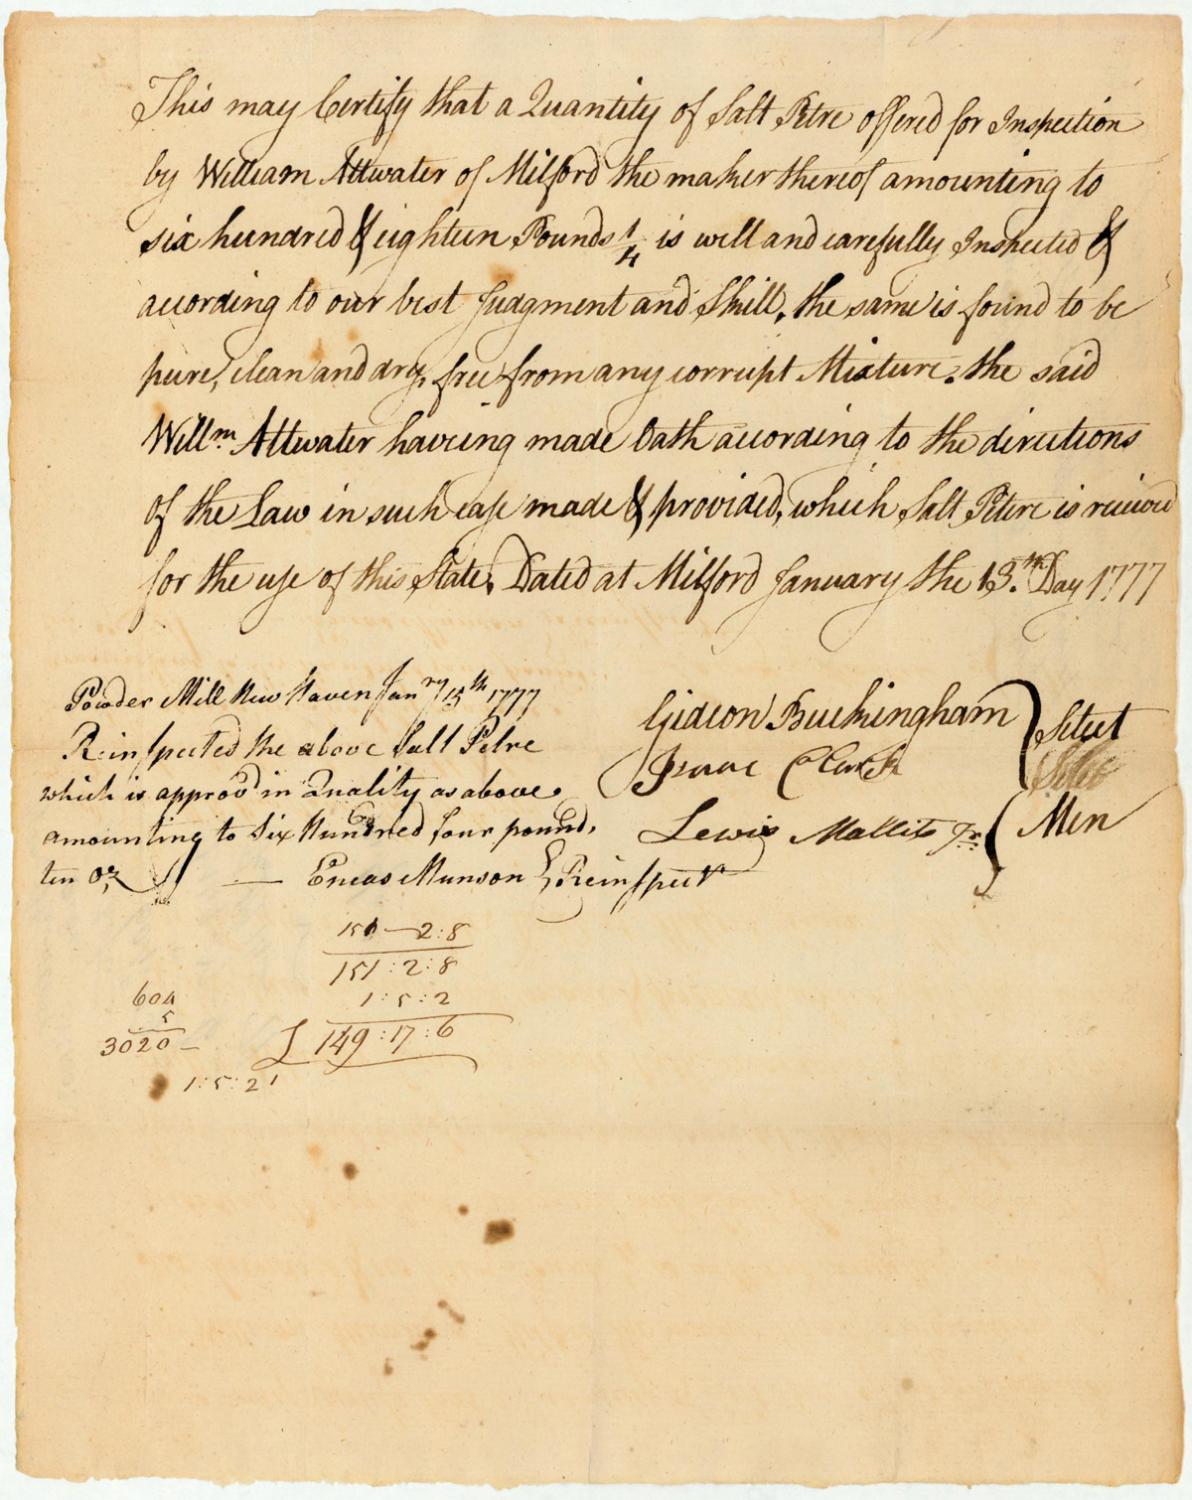 This may Certify that a Quantity of Salt Petre offered for Inspection
by William Attwater of Milford the maker thereof amounting to
six hundred & eighteen Pounds 1/4 is well and carefully Inspected &
according to our best Judgment and Skill, the same is found to be
pure, clean and dry, free from any corrupt Mixture. the said
Willm Attwater having made Oath according to the directions
of the Law in such case made & provided, which Salt Petere is received
for the use of this State. Dated at Milford January the 13.th Day 1777
Gideon Buckingham
Isaac Clark
Lewis Mallit Jr.
Select
Men
Powder Mill New Haven Janry 15th 1777
Reinspected the above Salt Petre
which is approvd in Quality as above.
amounting to Six Hundred four pound,
ten oz,
— Eneas Munson } Reinspectr
151—2:8
151:2:8
1:5:2
£ 149:17:6
604
5
3020 —
1:5:2